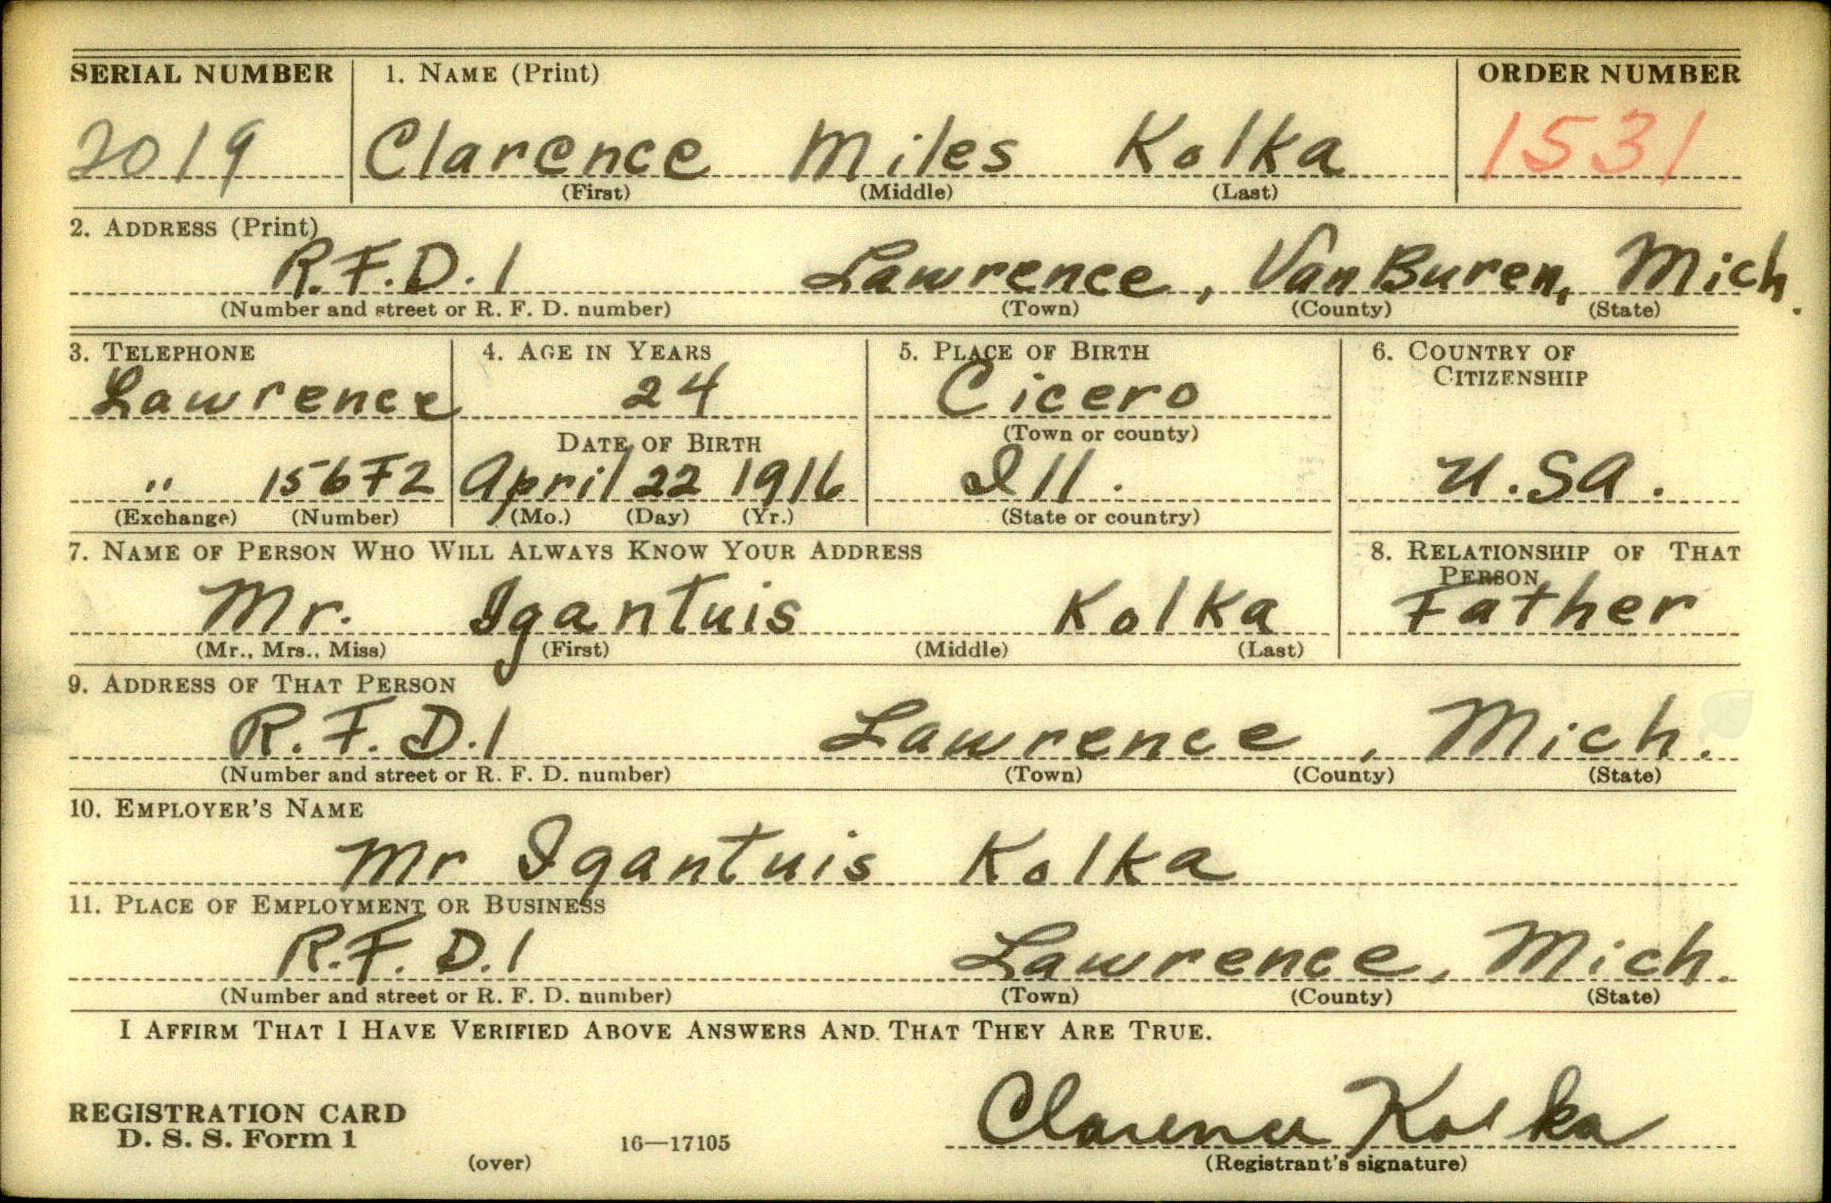 SERIAL NUMBER 1. NAME (Print) ORDER NUMBER
2019 Clarence Miles Kolka 1531
(First) (Middle) (Last)
2. ADDRESS (Print)
R.F.D. 1 Lawrence, Van Buren, Mich.
(Number and street or R. F. D. number) (Town) (County) (State)
3. TELEPHONE 4. AGE IN YEARS 5. PLACE OF BIRTH 6. COUNTRY OF CITIZENSHIP
Lawrence 24 Cicero
DATE OF BIRTH (Town or county)
" 156F2 April 22 1916 Ill. U.SA.
(Exchange) (Number) (Mo.) (Day) (Yr.) (State or country)
7. NAME OF PERSON WHO WILL ALWAYS KNOW YOUR ADDRESS 8. RELATIONSHIP OF THAT PERSON
Mr. Igantuis Kolka Father
(Mr., Mrs., Miss) (First) (Middle) (Last)
9. ADDRESS OF THAT PERSON
R.F.D.1 Lawrence, Mich.
(Number and street or R. F. D. number) (Town) (County) (State)
10. EMPLOYER'S NAME
Mr Igantuis Kolka
11. PLACE OF EMPLOYMENT OR BUSINESS
R.F.D.1 Lawrence, Mich.
(Number and street or R. F. D. number) (Town) (County) (State)
I AFFIRM THAT I HAVE VERIFIED ABOVE ANSWERS AND THAT THEY ARE TRUE.
Clarence Kolka
REGISTRATION CARD
D. S. S. Form 1 16—17105
(over) (Registrant's signature)